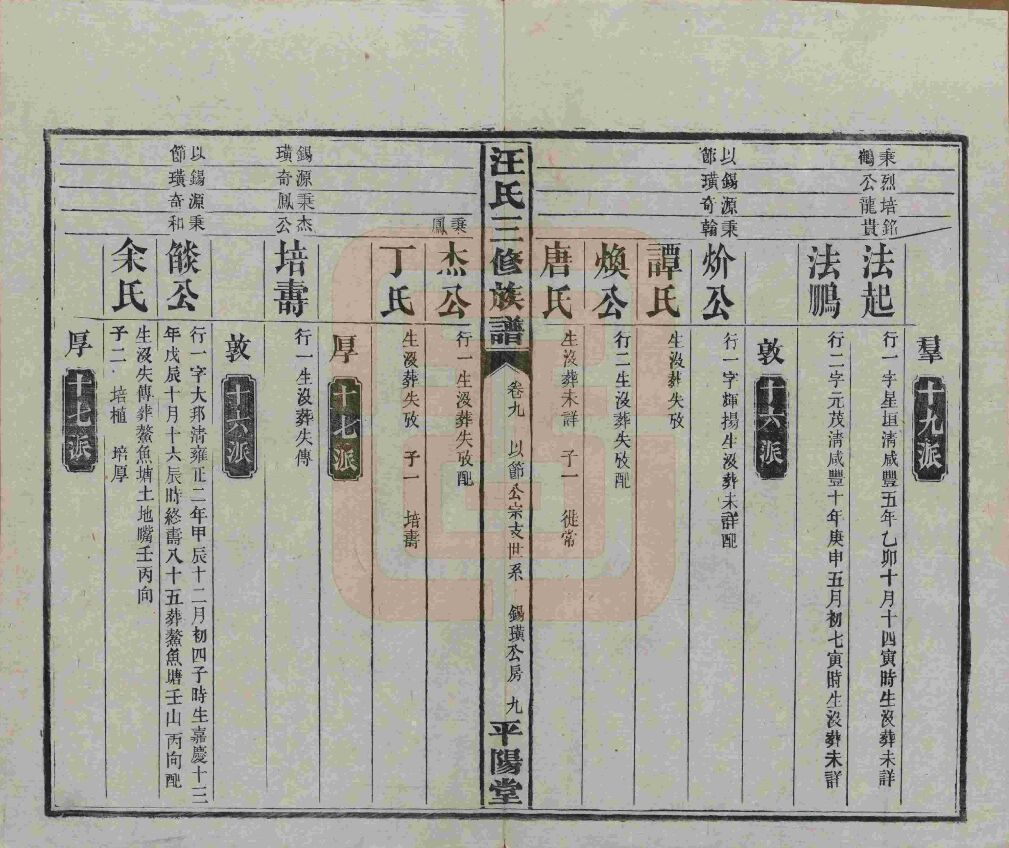 羣 十九派
秉烈培銘
鶴公龍貴
法起 行一字星垣清咸豐五年乙卯十月十四寅時生沒葬未詳
法鵬 行二字元茂清咸豐十年庚申五月初七寅時生沒葬未詳
敦 十六派
以錫源秉
節璜奇翰
炌公 行一字輝揚生沒葬未詳配
譚氏 生沒葬失攷
煥公 行二生沒葬失攷配
唐氏 生沒葬未詳 子一 徙常
汪氏三修族譜 卷九 以節公宗支世系 錫璜公房 九 平陽堂
秉
鳳
杰公 行一生沒葬失攷配
丁氏 生沒葬失攷 子一 培壽
厚 十七派
錫源秉杰
璜奇鳳公
培壽 行一生沒葬失傳
敦 十六派
以錫源秉
節璜奇和
餤公 行一字大邦清雍正二年甲辰十二月初四子時生嘉慶十三
年戊辰十月十六辰時終壽八十五葬鰲魚塘壬山丙向配
余氏 生沒失傳葬鰲魚塘土地嘴壬丙向
子二 培植 培厚
厚 十七派